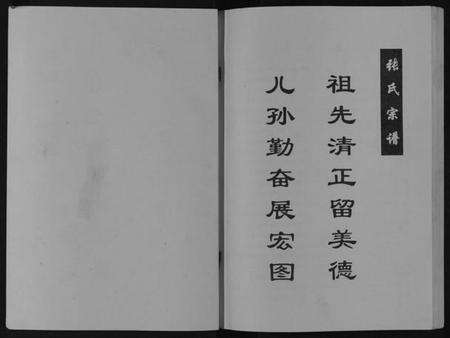 张氏宗谱
祖先清正留美德
儿孙勤奋展宏图